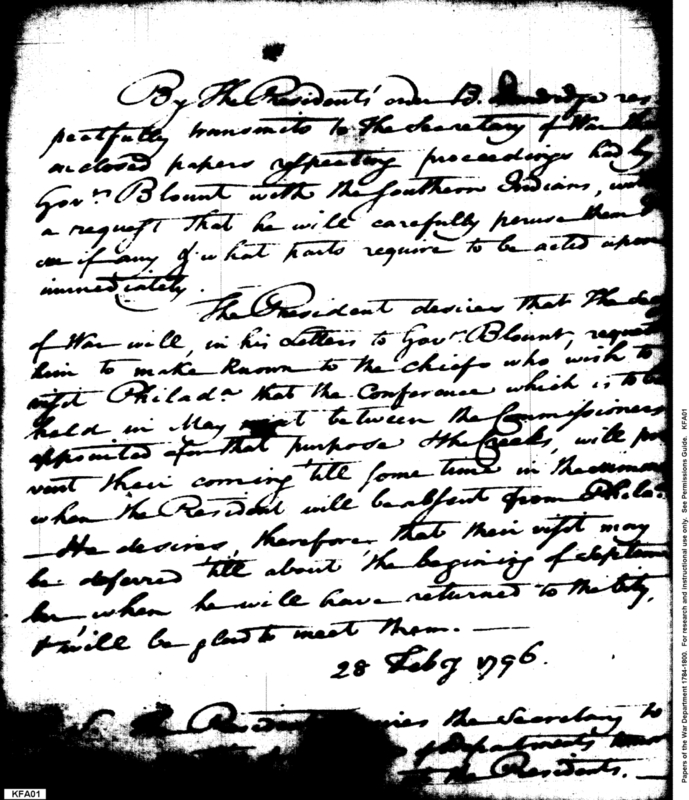 By the Presidents' order B. Dandridge res
pectfully transmits to the Secretary of War the
enclosed papers respecting proceedings had by
Govr. Blount with the southern Indians, with
a request that he will carefully peruse them &
see if any & what parts require to be acted upon
immediately.
The President desires that the Secy
of War will, in his Letters to Govr. Blount, request
him to make known to the chiefs who wish to
visit Philada. that the Conference which is to be
held in May next between the Commissioners
appointed for that purpose & the Creeks, will pre
vent their coming 'till some time in the summer
when the President will be absent from Philada.
— He desires, therefore, that their visit may
be deferred 'till about the begining of Septem
ber when he will have returned to the City,
& will be glad to meet them. —
28 Feby 1796.
The President desires the Secretary to
departments
to the Presidents. —
KFA01
Papers of the War Department 1784-1800. For research and instructional use only. See Permissions Guide. KFA01